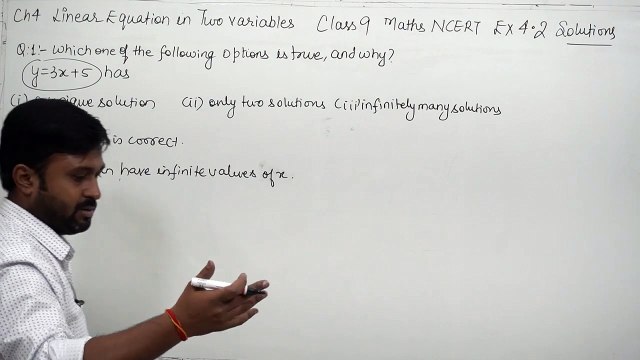 Ch4 Linear Equation in Two variables Class 9 Maths NCERT EX 4.2 Solutions
Q.1:- Which one of the following options is true, and why?
y=3x+5 has
(i) unique solution (ii) only two solutions (iii) infinitely many solutions
is correct.
have infinite values of x.